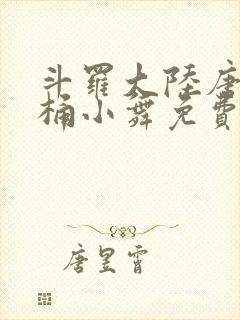 斗羅大陸唐
桶小舞免費
唐昱霄